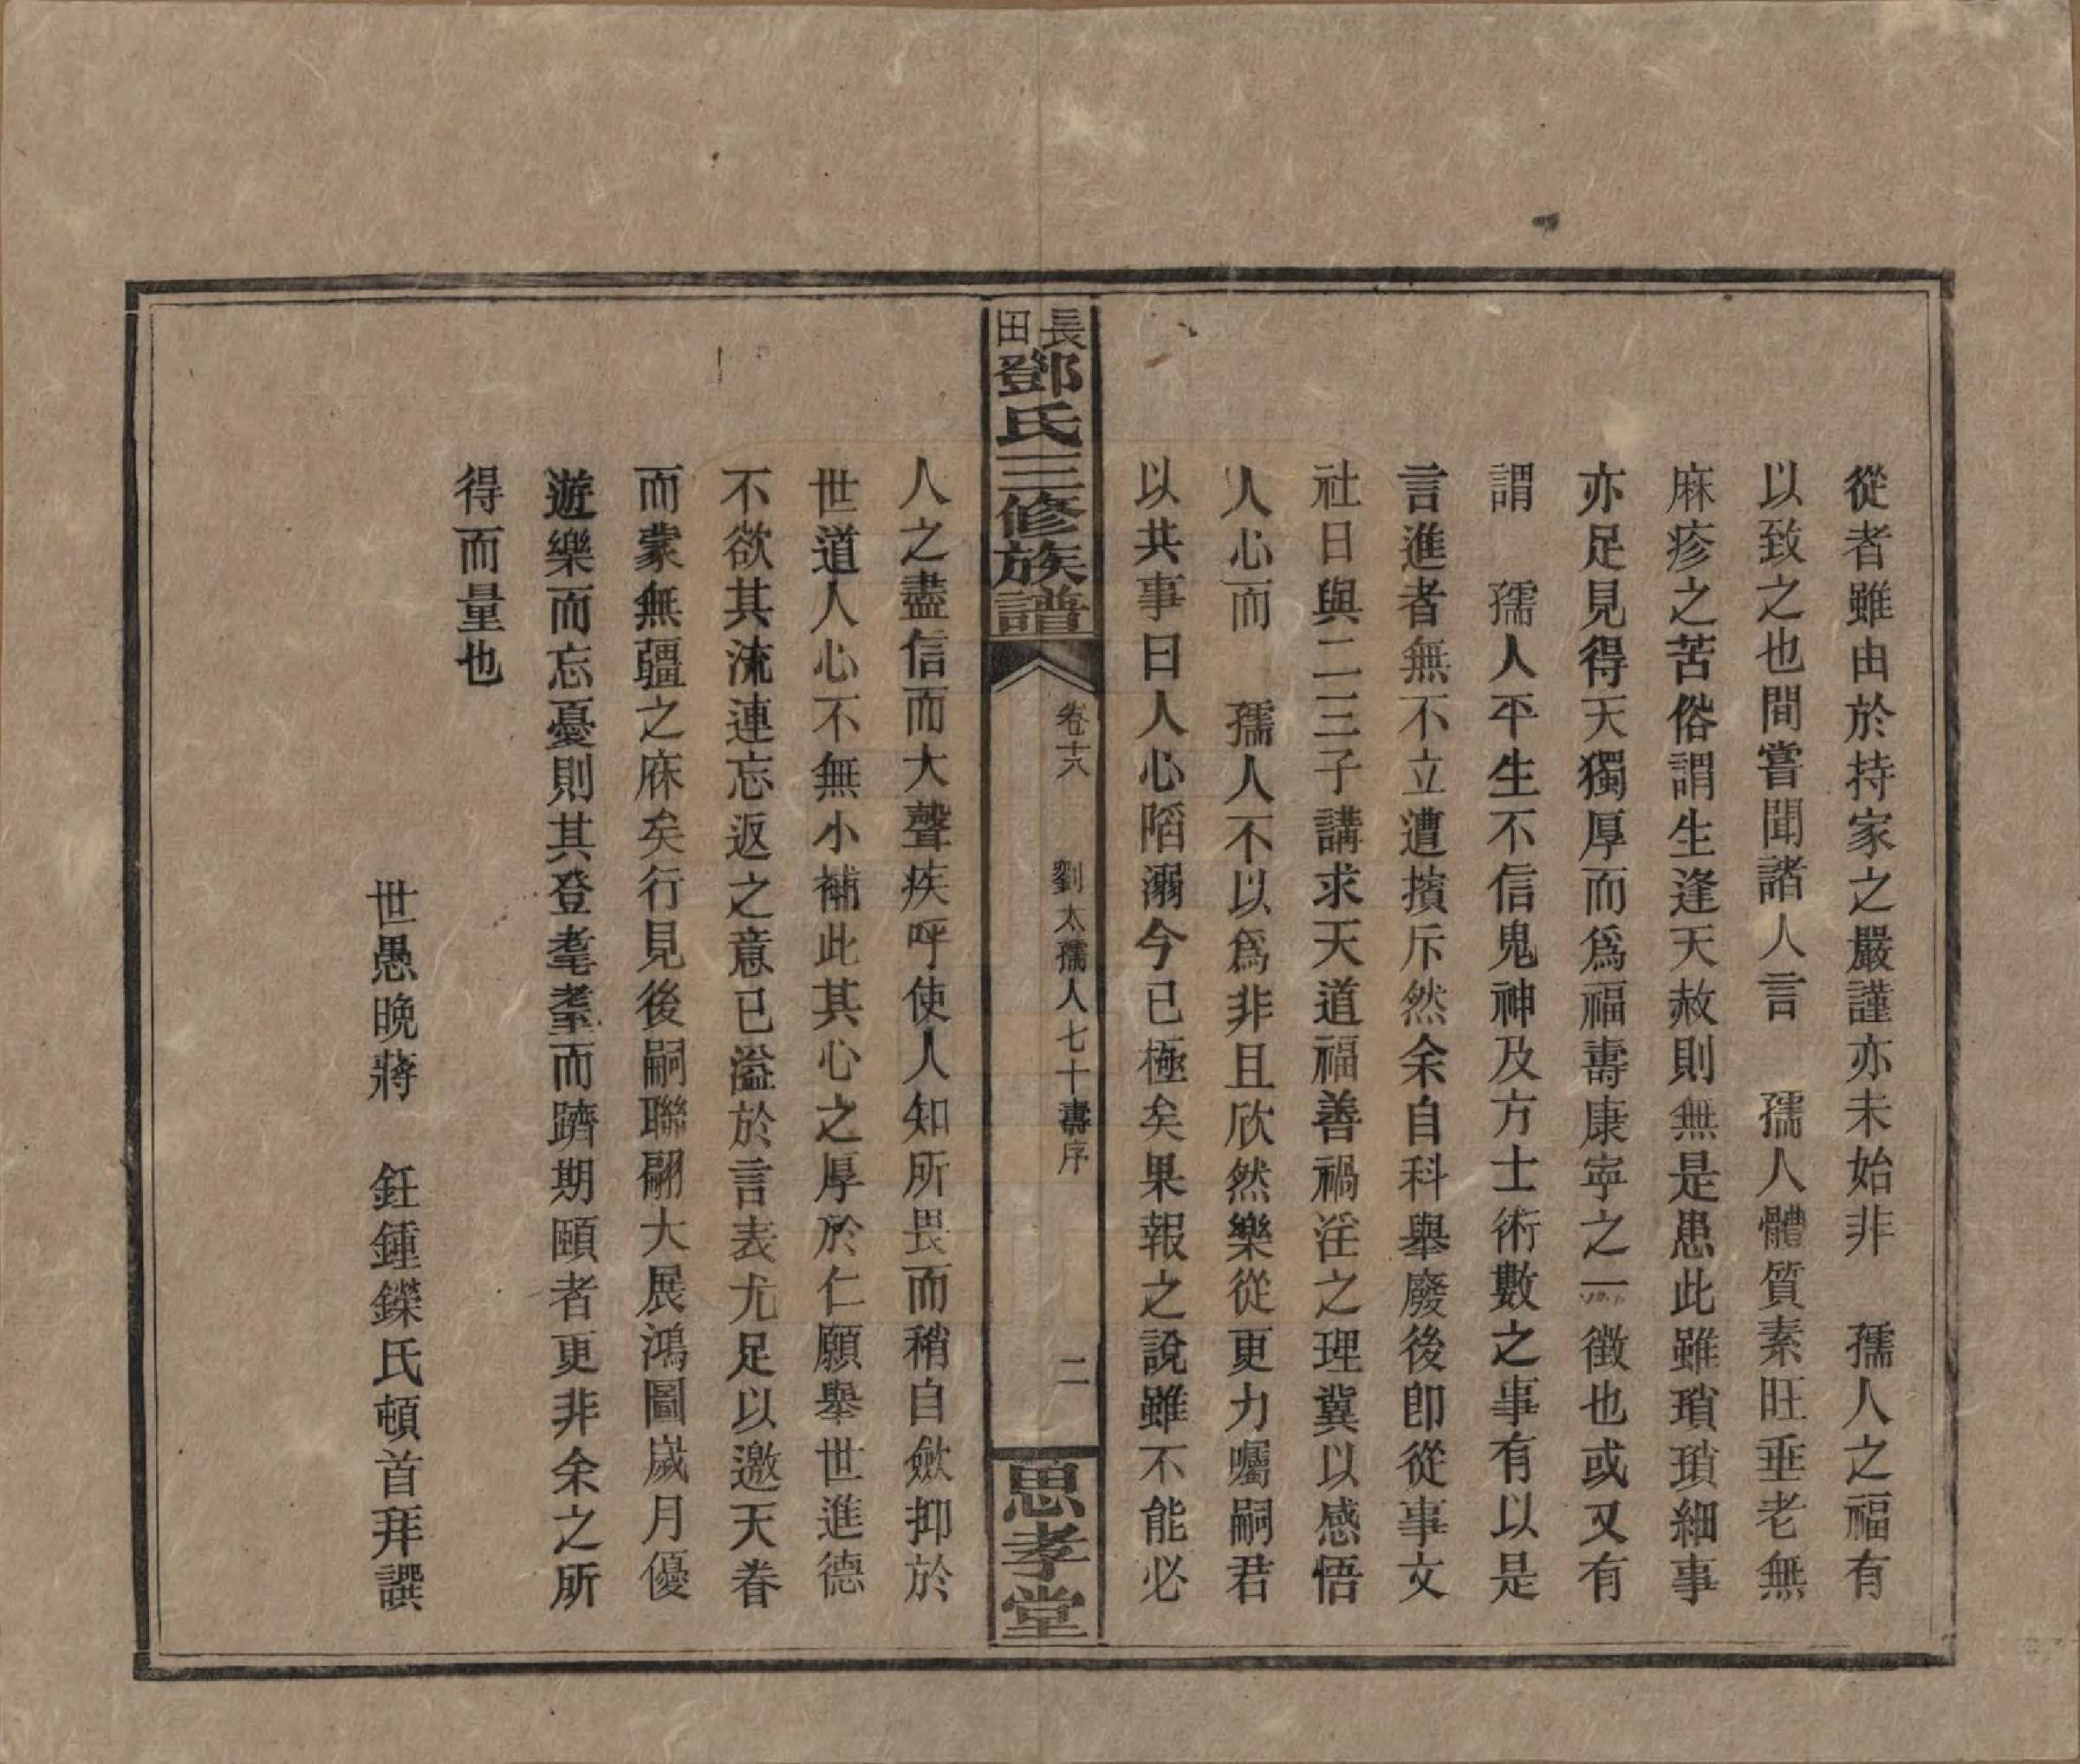 從者雖由於持家之嚴謹亦未始非　孺人之福有
以致之也間嘗聞諸人言　孺人體質素旺垂老無
麻疹之苦俗謂生逢天赦則無是患此雖瑣瑣細事
亦足見得天獨厚而爲福壽康寧之一徵也或又有
謂　孺人平生不信鬼神及方士術數之事有以是
言進者無不立遭擯斥然余自科舉廢後卽從事文
社日與二三子講求天道福善禍淫之理冀以感悟
人心而　孺人不以爲非且欣然樂從更力囑嗣君
以共事曰人心陷溺今已極矣果報之說雖不能必
長田鄧氏三修族譜
卷十六　劉太孺人七十壽序　二
思孝堂
人之盡信而大聲疾呼使人知所畏而稍自歛抑於
世道人心不無小補此其心之厚於仁願舉世進德
不欲其流連忘返之意已溢於言表尤足以邀天眷
而蒙無疆之庥矣行見後嗣聯翩大展鴻圖歲月優
遊樂而忘憂則其登耄耋而躋期頤者更非余之所
得而量也
世愚晚蔣　鈺鍾鑅氏頓首拜譔